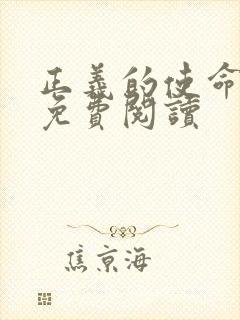 正義的使命
免費閱讀
焦京海